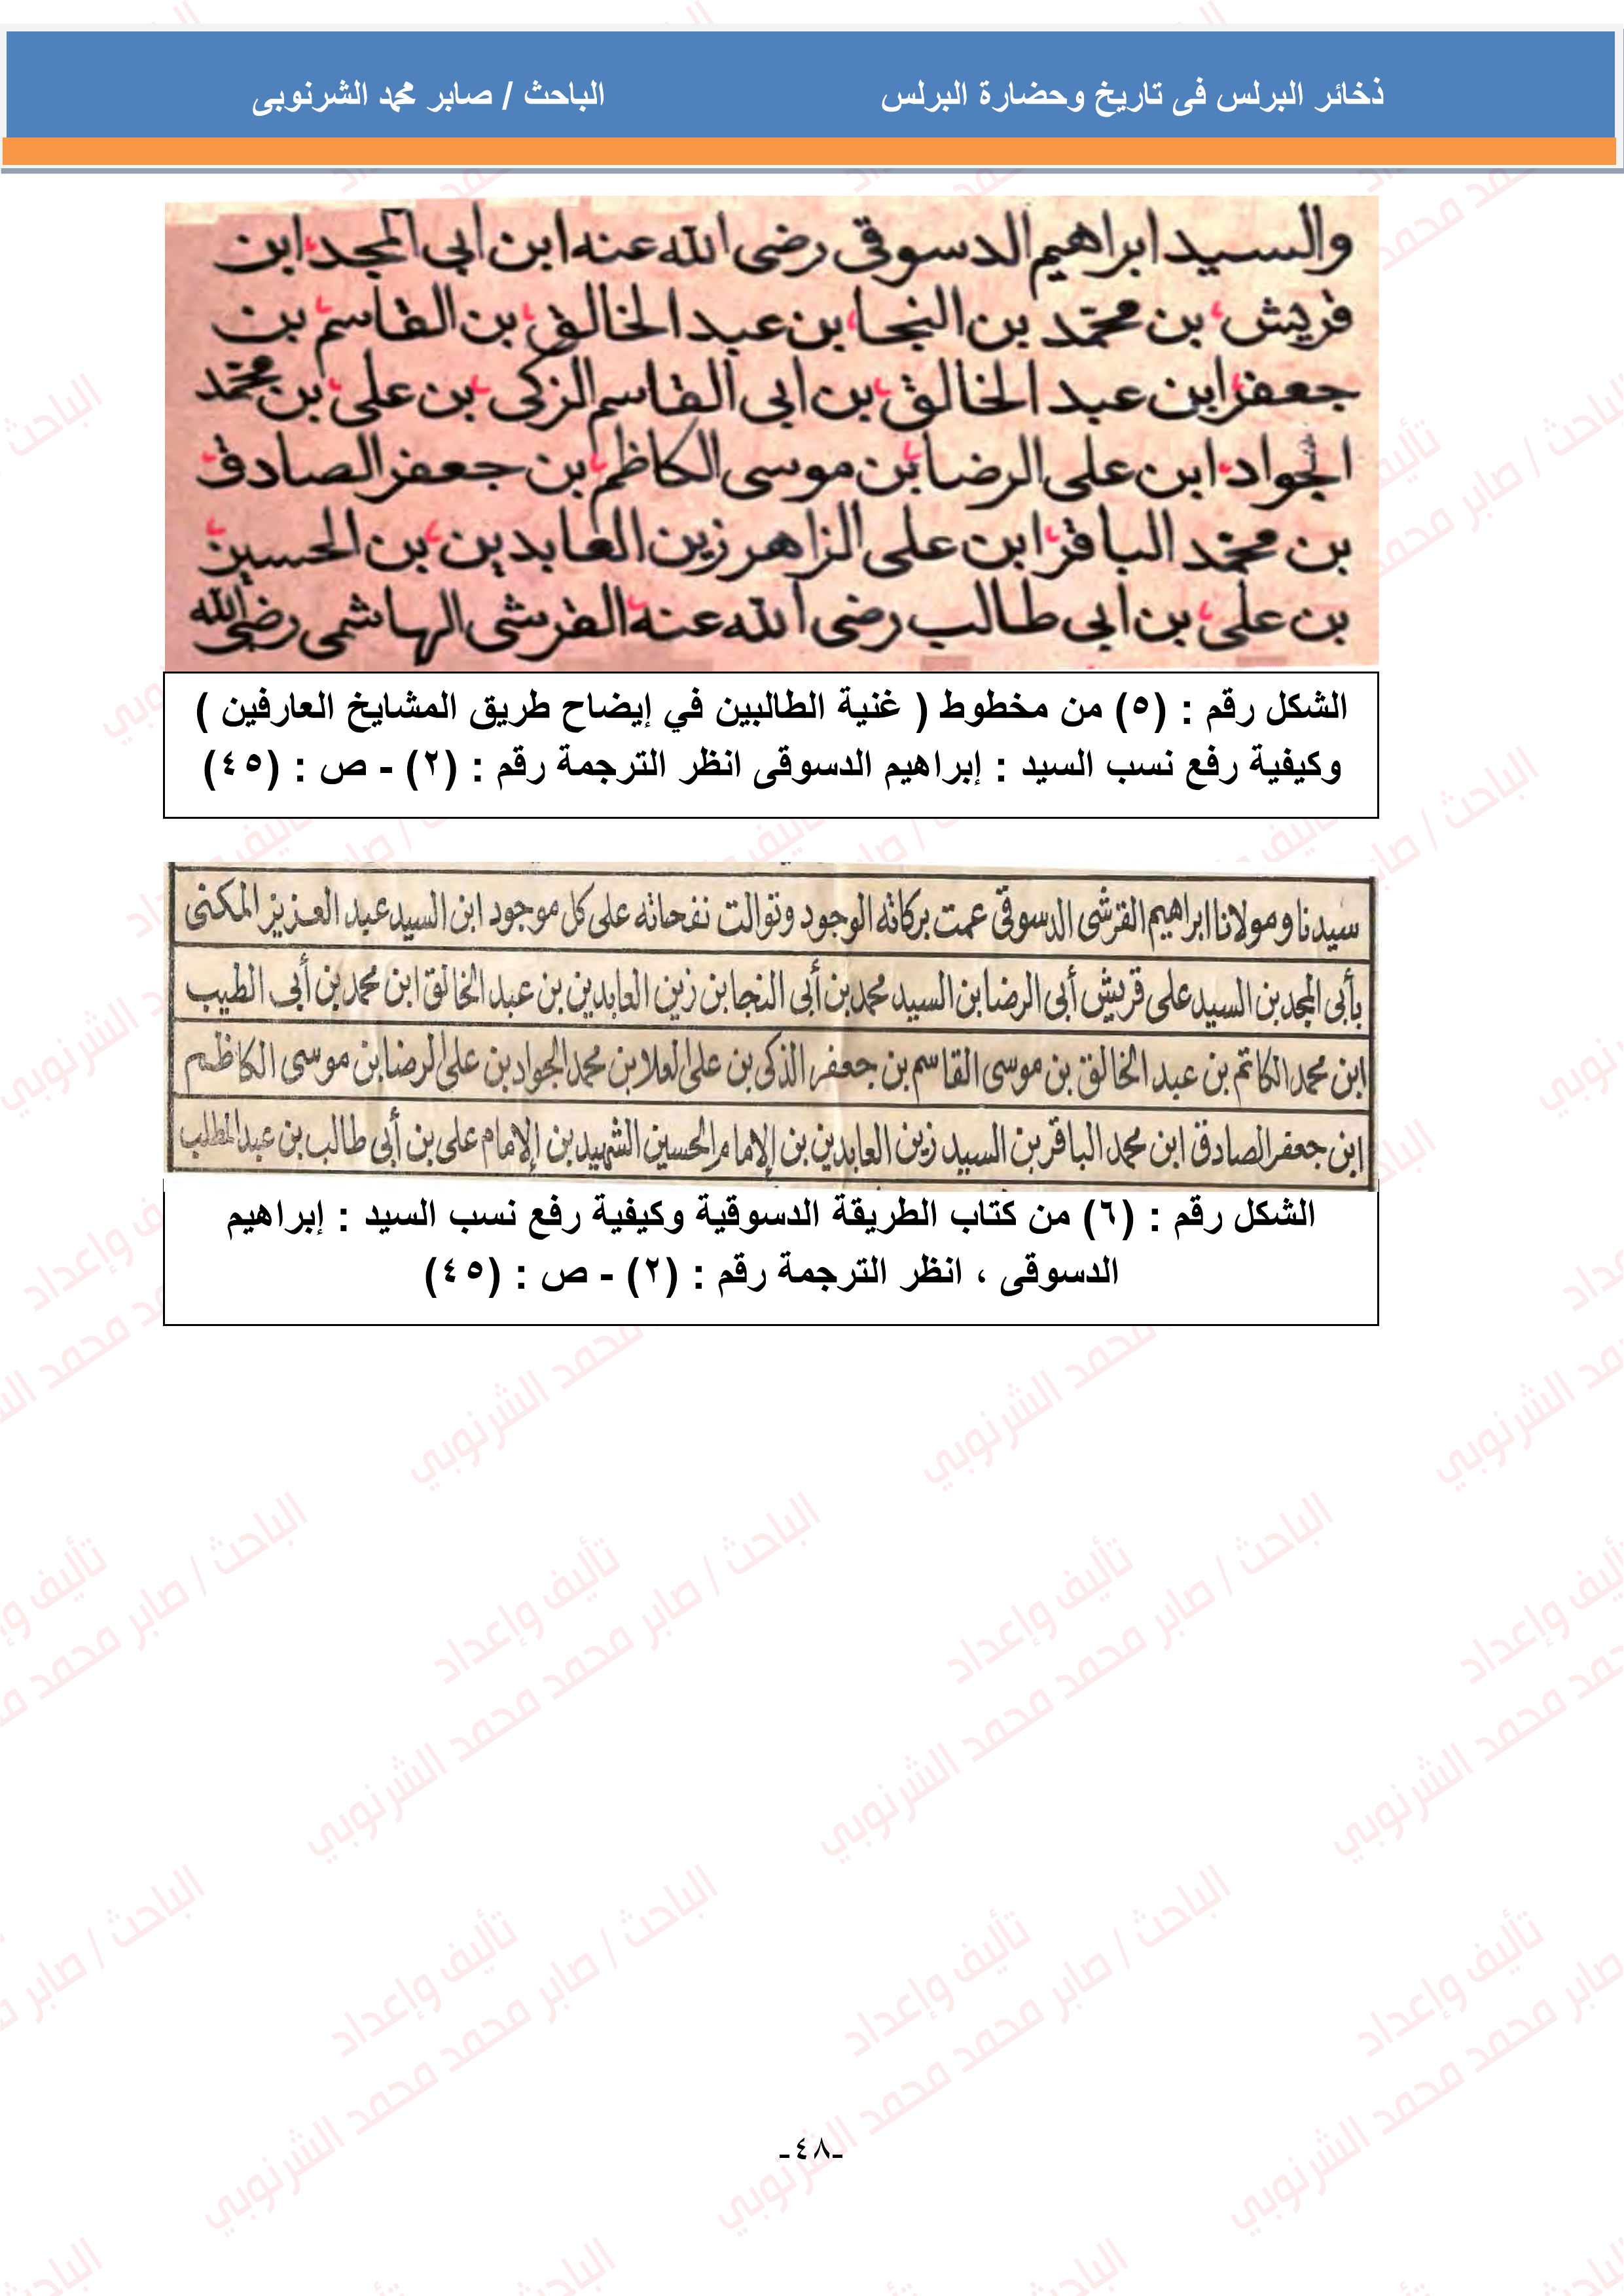 ذخائر البرلس فى تاريخ وحضارة البرلس الباحث / صابر محمد الشرنوبى
والسيد ابراهيم الدسوقي رضى الله عنه ابن ابى المجد ابن
قريش بن محمد بن النجا بن عبد الخالق بن القاسم بن
جعفر ابن عبد الخالق بن ابى القاسم الزكى بن على بن محمد
الجواد ابن على الرضا بن موسى الكاظم بن جعفر الصادق
بن محمد الباقر ابن على الزاهر زين العابدين بن الحسين
بن على بن ابى طالب رضى الله عنه القرشى الهاشمى رضى الله
الشكل رقم : (٥) من مخطوط ( غنية الطالبين في إيضاح طريق المشايخ العارفين )
وكيفية رفع نسب السيد : إبراهيم الدسوقى انظر الترجمة رقم : (٢) - ص : (٤٥)
سيدنا ومولانا ابراهيم القرشى الدسوقى عمت بركاته الوجود وتوالت نفحاته على كل موجود ابن السيد عبد العزيز المكنى
بأبى المجد بن السيد على قريش أبى الرضا بن السيد محمد بن أبى النجا بن زين العابدين بن عبد الخالق ابن محمد بن أبى الطيب
ابن محمد الكاتم بن عبد الخالق بن موسى القاسم بن جعفر الذكى بن على العلا بن محمد الجواد بن على الرضا بن موسى الكاظم
ابن جعفر الصادق ابن محمد الباقر بن السيد زين العابدين بن الامام الحسين الشهيد بن الامام على بن أبى طالب بن عبد المطلب
الشكل رقم : (٦) من كتاب الطريقة الدسوقية وكيفية رفع نسب السيد : إبراهيم
الدسوقى ، انظر الترجمة رقم : (٢) - ص : (٤٥)
تأليف وإعداد
الباحث / صابر محمد محمد الشرنوبي
-٤٨-